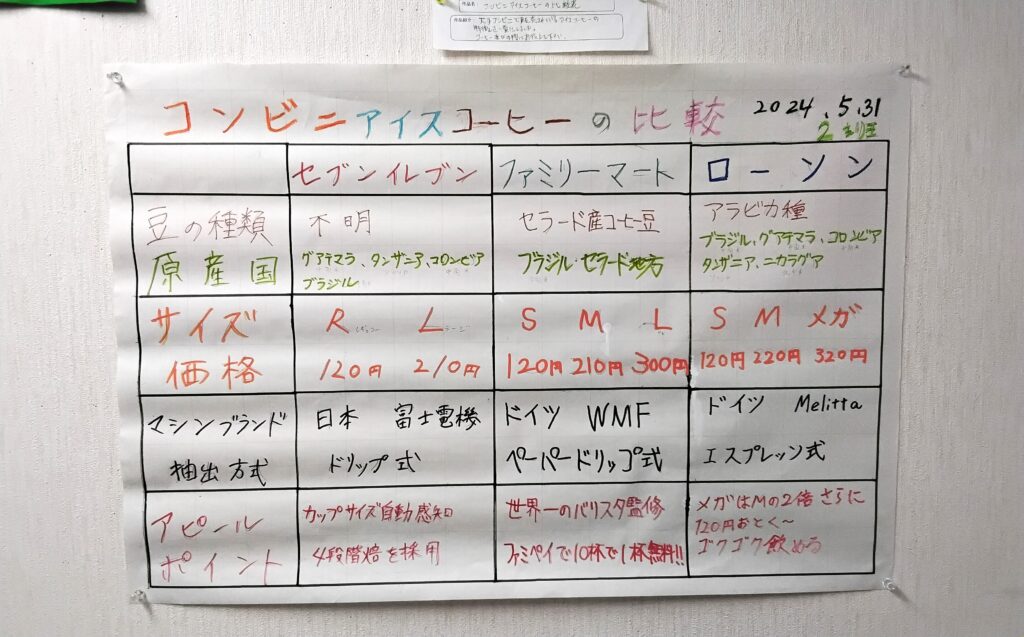 コンビニアイスコーヒーの比較表
コンビニアイスコーヒーの比較 2024.5.31
セブンイレブン ファミリーマート ローソン
豆の種類 不明 セラード産コーヒー豆 アラビカ種
原産国 グアテマラ、タンザニア、コロンビア ブラジル・セラード地方 ブラジル、グアテマラ、コロンビア
ブラジル タンザニア、ニカラグア
サイズ R L S M L S M メガ
価格 120円 210円 120円 210円 300円 120円 220円 320円
マシンブランド 日本 富士電機 ドイツ WMF ドイツ Melitta
抽出方式 ドリップ式 ペーパードリップ式 エスプレッソ式
アピール カップサイズ自動感知 世界一のバリスタ監修 メガはMの2倍さらに
120円おとく~
ポイント 4段階焙を採用 ファミペイで10杯で1杯無料!! ゴクゴク飲める